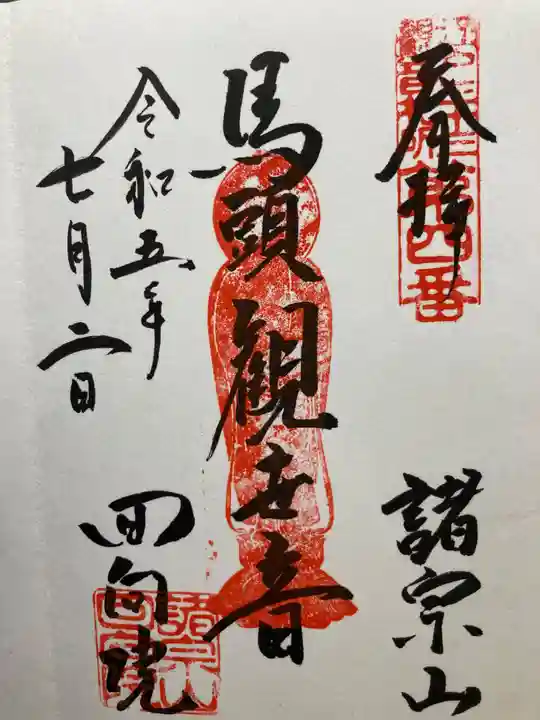 奉拝
諸宗山
馬頭観世音
令和五年
七月二日
回向院
第四番